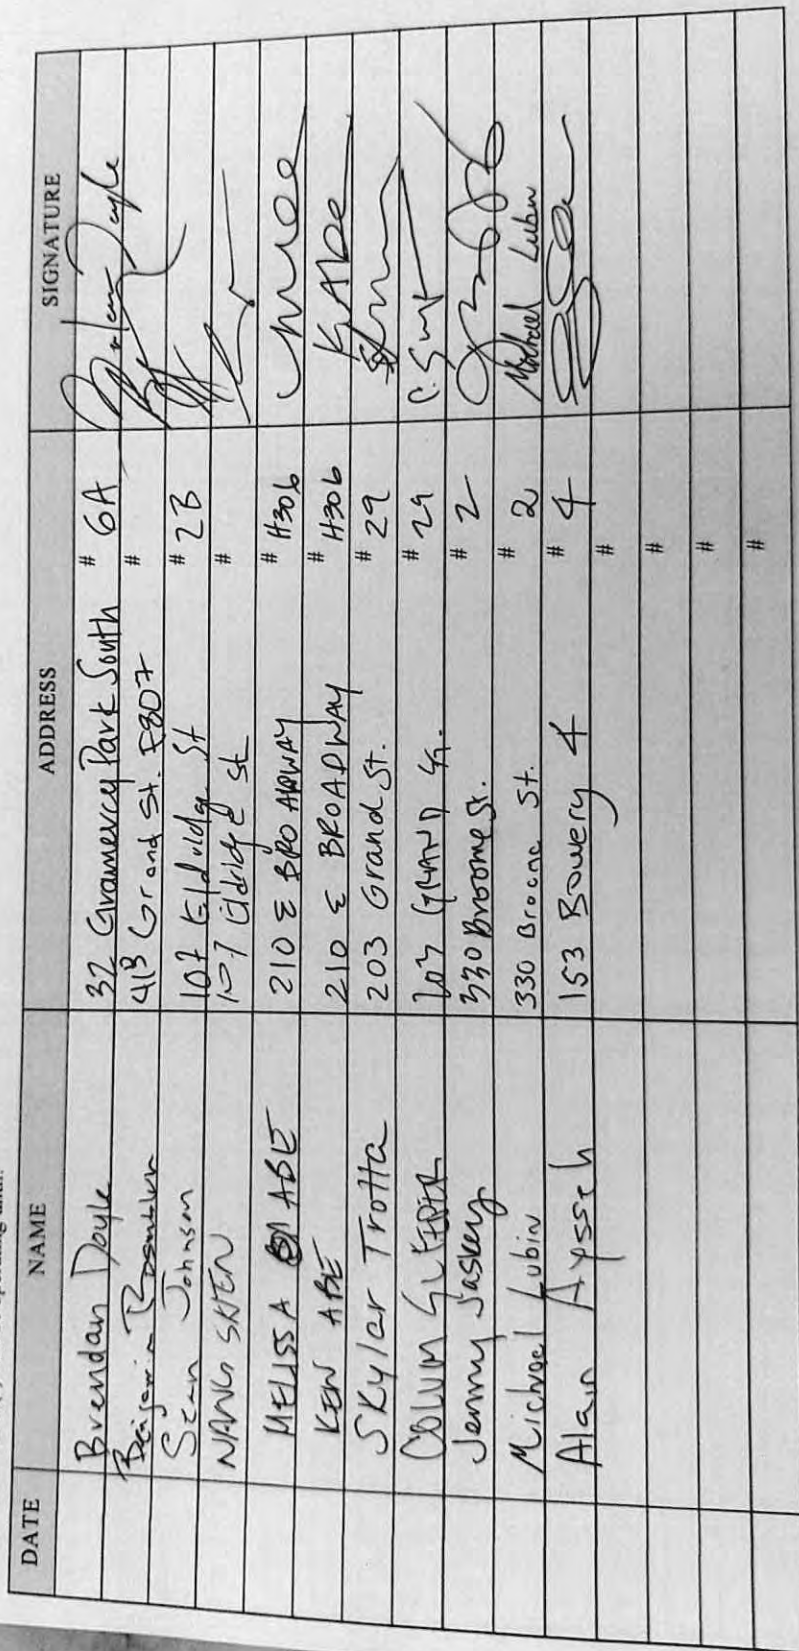 DATE NAME ADDRESS SIGNATURE
Brendan Doyle 32 Gramercy Park South # 6A
413 Grand St. F807 #
Sean Johnson 107 Eldridge St # 2B
107 Eldridge St #
MELISSA ABE 210 E BROADWAY # H306
KEN ABE 210 E BROADWAY # H306 KAbe
Skylar Trotta 203 Grand St. # 29
COLUM 203 GRAND St. # 29
Jenny Jaskey 330 Broome St. # 2
Michael Lubin 330 Broome St. # 2 Michael Lubin
Alain Aysseh 153 Bowery 4 # 4
#
#
#
#